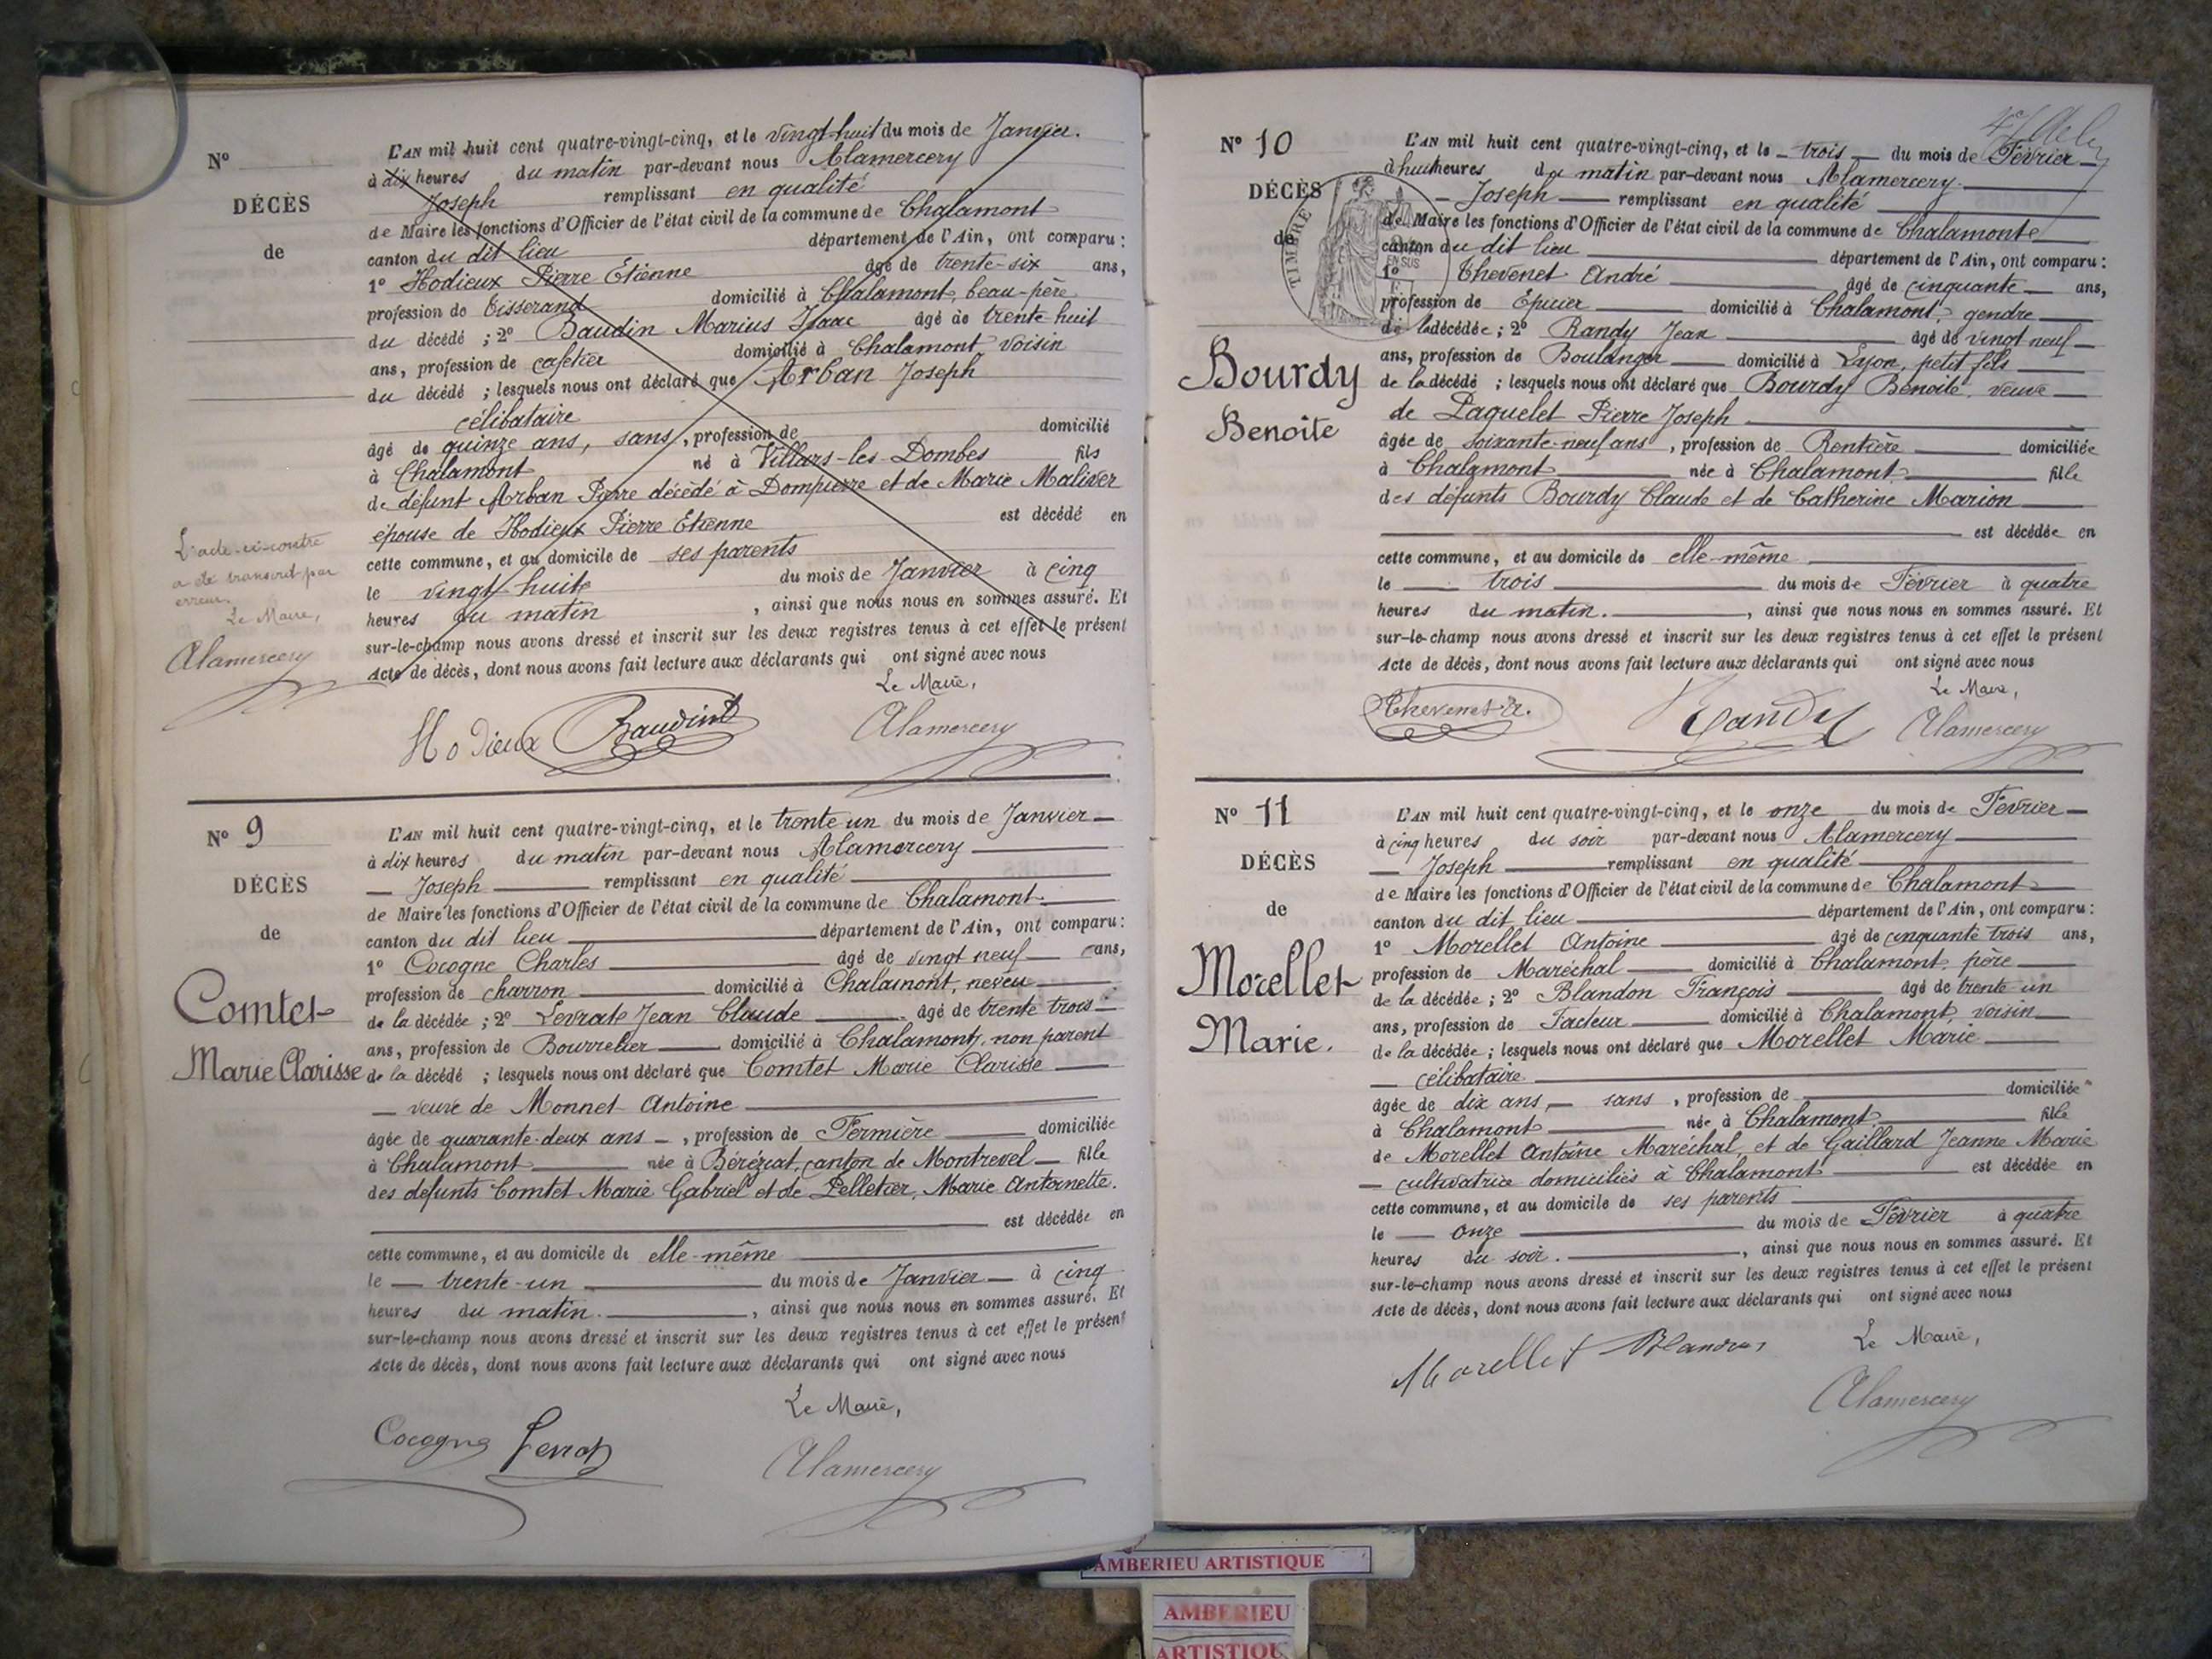 N°
DÉCÈS
de
L'AN mil huit cent quatre-vingt-cinq, et le vingt-huit du mois de Janvier.
à dix heures du matin par-devant nous Alamercery
Joseph remplissant en qualité
de Maire les fonctions d'Officier de l'état civil de la commune de Chalamont
canton du dit lieu département de l'Ain, ont comparu :
1° Hodieux Pierre Étienne âgé de trente-six ans,
profession de Tisserand domicilié à Chalamont, beau-père
du décédé ; 2° Baudin Marius Isaac âgé de trente huit
ans, profession de cafetier domicilié à Chalamont voisin
du décédé ; lesquels nous ont déclaré que Arban Joseph
célibataire
âgé de quinze ans, sans, profession de domicilié
à Chalamont né à Villars-les-Dombes fils
de défunt Arban Pierre décédé à Dompierre et de Marie Maliver
épouse de Hodieux Pierre Etienne est décédé en
cette commune, et au domicile de ses parents
le vingt huite du mois de Janvier à cinq
heures du matin , ainsi que nous nous en sommes assuré. Et
sur-le-champ nous avons dressé et inscrit sur les deux registres tenus à cet effet le présent
Acte de décès, dont nous avons fait lecture aux déclarants qui ont signé avec nous
Le Maire,
Hodieux Baudin Alamercery
L'acte ci-contre
a été transcrit par
erreur.
Le Maire,
Alamercery
N° 9
DÉCÈS
de
Comtet
Marie Clarisse
L'AN mil huit cent quatre-vingt-cinq, et le trente un du mois de Janvier
à dix heures du matin par-devant nous Alamercery
Joseph remplissant en qualité
de Maire les fonctions d'Officier de l'état civil de la commune de Chalamont
canton du dit lieu département de l'Ain, ont comparu :
1° Cocogne Charles âgé de vingt neuf ans,
profession de charron domicilié à Chalamont, neveu
de la décédée ; 2° Levrat Jean Claude âgé de trente trois
ans, profession de Bourrelier domicilié à Chalamont, non parent
de la décédé ; lesquels nous ont déclaré que Comtet Marie Clarisse
veuve de Monnet Antoine
âgée de quarante-deux ans , profession de Fermière domiciliée
à Chalamont née à Béréziat, canton de Montrevel fille
des défunts Comtet Marie Gabriel et de Pelletier, Marie Antoinette.
est décédée en
cette commune, et au domicile de elle-même
le trente-un du mois de Janvier à cinq
heures du matin. , ainsi que nous nous en sommes assuré. Et
sur-le-champ nous avons dressé et inscrit sur les deux registres tenus à cet effet le présent
Acte de décès, dont nous avons fait lecture aux déclarants qui ont signé avec nous
Le Maire,
Cocogne Levrat Alamercery
N° 10
DÉCÈS
de
TIMBRE
EN SUS
Bourdy
Benoite
L'AN mil huit cent quatre-vingt-cinq, et le trois du mois de Février
à huit heures du matin par-devant nous Alamercery
Joseph remplissant en qualité
de Maire les fonctions d'Officier de l'état civil de la commune de Chalamont
canton du dit lieu département de l'Ain, ont comparu :
1° Thevenet André âgé de cinquante ans,
profession de Épicier domicilié à Chalamont, gendre
de la décédée ; 2° Randy Jean âgé de vingt neuf
ans, profession de Boulanger domicilié à Lyon, petit fils
de la décédé ; lesquels nous ont déclaré que Bourdy Benoite, veuve
de Paquelet Pierre Joseph
âgée de soixante-neuf ans , profession de Rentière domiciliée
à Chalamont née à Chalamont fille
des défunts Bourdy Claude et de Catherine Marion
est décédée en
cette commune, et au domicile de elle-même
le trois du mois de Février à quatre
heures du matin. , ainsi que nous nous en sommes assuré. Et
sur-le-champ nous avons dressé et inscrit sur les deux registres tenus à cet effet le présent
Acte de décès, dont nous avons fait lecture aux déclarants qui ont signé avec nous
Le Maire,
Thevenet A. Randy Alamercery
N° 11
DÉCÈS
de
Morellet
Marie.
L'AN mil huit cent quatre-vingt-cinq, et le onze du mois de Février
à cinq heures du soir par-devant nous Alamercery
Joseph remplissant en qualité
de Maire les fonctions d'Officier de l'état civil de la commune de Chalamont
canton du dit lieu département de l'Ain, ont comparu :
1° Morellet Antoine âgé de cinquante trois ans,
profession de Maréchal domicilié à Chalamont, père
de la décédée ; 2° Blandon François âgé de trente un
ans, profession de Facteur domicilié à Chalamont, voisin
de la décédée ; lesquels nous ont déclaré que Morellet Marie
célibataire
âgée de dix ans, sans , profession de domiciliée
à Chalamont née à Chalamont fille
de Morellet Antoine Maréchal, et de Gaillard Jeanne Marie
cultivatrice domiciliés à Chalamont est décédée en
cette commune, et au domicile de ses parents
le onze du mois de Février à quatre
heures du soir. , ainsi que nous nous en sommes assuré. Et
sur-le-champ nous avons dressé et inscrit sur les deux registres tenus à cet effet le présent
Acte de décès, dont nous avons fait lecture aux déclarants qui ont signé avec nous
Le Maire,
Morellet Blandon
Alamercery
AMBERIEU ARTISTIQUE
AMBERIEU
ARTISTIQU